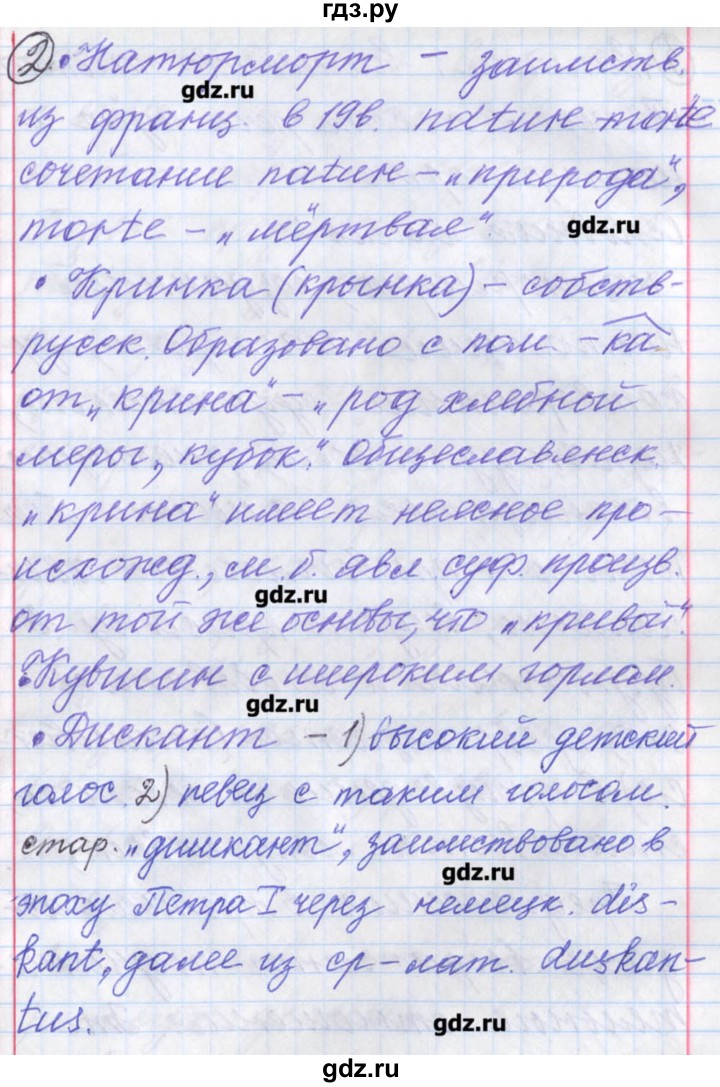 гдз.ру
2 • Натюрморт – заимств.
gdz.ru
из франц. в 19в. nature morte
сочетание nature – „природа",
morte – „мёртвая".
gdz.ru
• Кринка (крынка) – собств-
русск. Образовано с пом. -ка
от „крина" – „род хлебной
меры, кубок". Общеславянск.
„крина" имеет неясное про-
исхожд., м.б. явл суф. произв.
gdz.ru
от той же основы, что „кривой".
•Кувшин с широким горлом.
gdz.ru
• Дискант – 1) высокий детский
голос. 2) певец с таким голосом.
стар. „дишкант", заимствовано в
gdz.ru
эпоху Петра I через немецк. dis-
kant, далее из ср-лат. diskan-
tus.
gdz.ru
gdz.ru